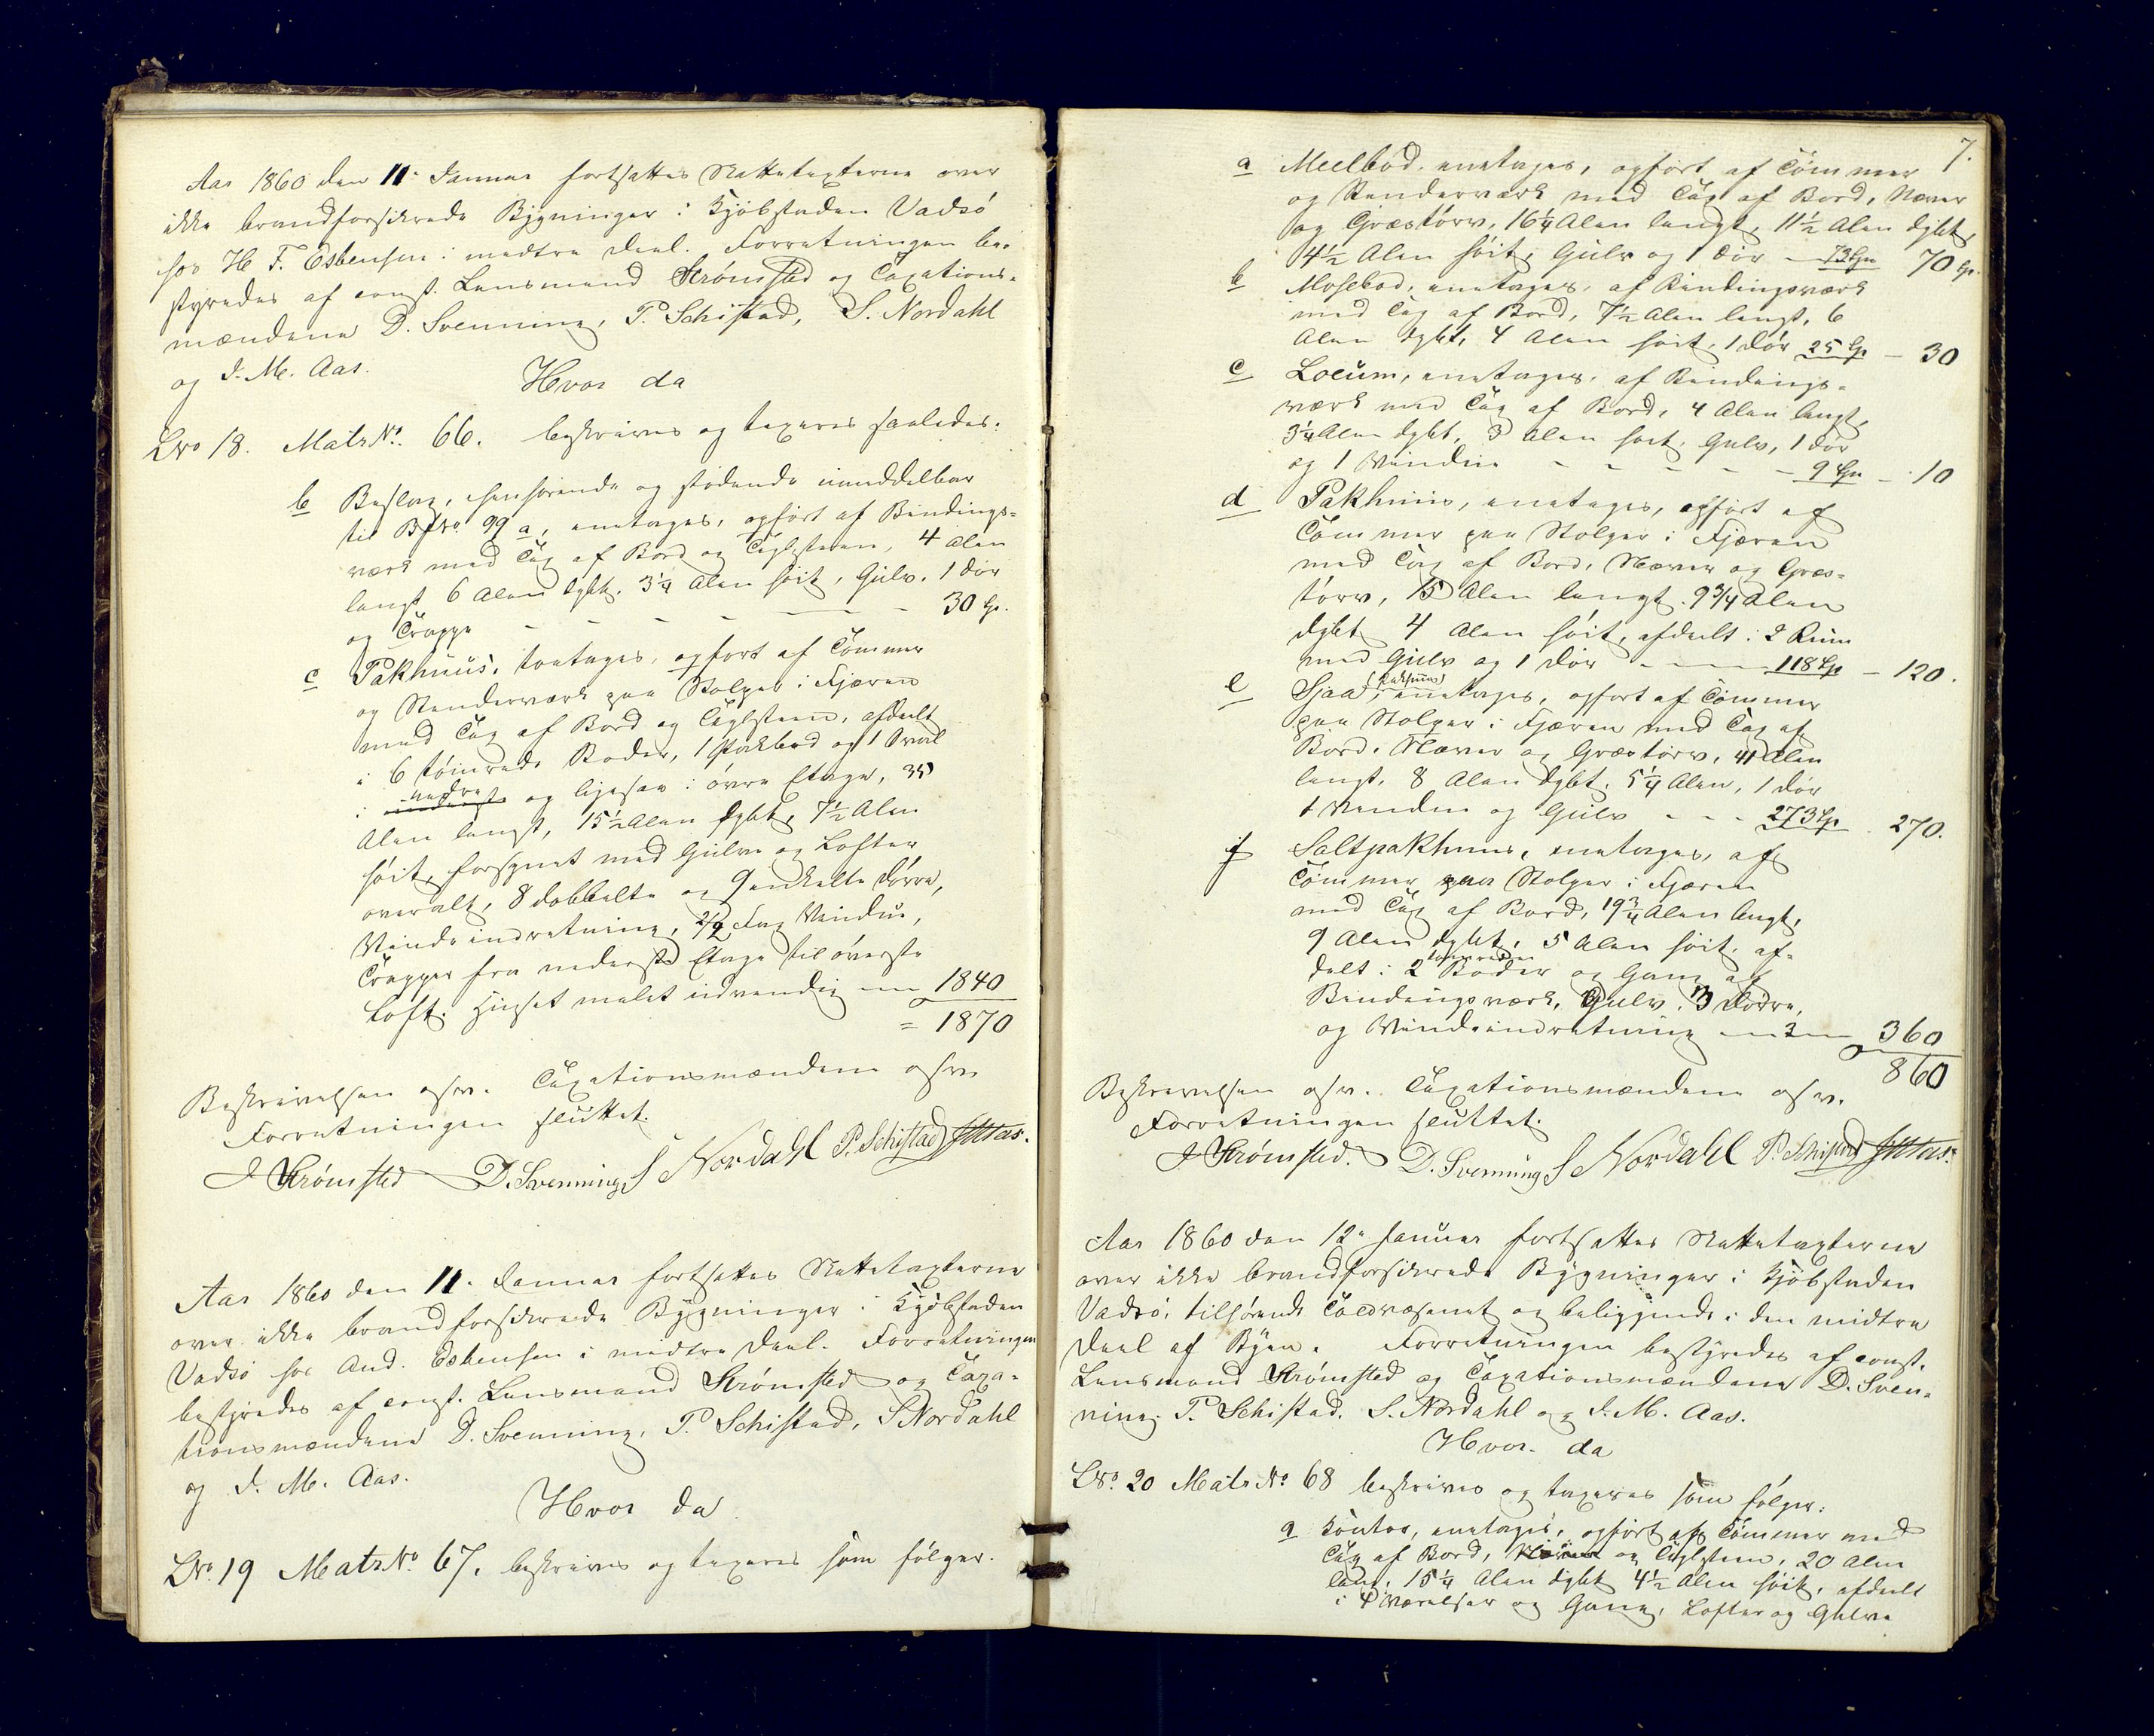 Aar 1860 den 11. Januar fortsattes Nattetaxterne over
ikke brandforsikrede Bygninger i Kjøbstaden Vadsö
hos H. F. Esbensen i midtre Deel. Forretningen be-
styredes af const. Lensmand Strømsted og Taxations-
mændene D. Svenning, P. Schistad, S. Nordahl
og J. M. Aas.
Hvor da
LNo 18. Matr. No. 66. beskrives og taxeres saaledes:
b Beslag, henhörende og stödende umiddelbar
til BfNo. 99 a, eenetages, opfört af Bindings-
værk med Tag af Bord og Teglsteen, 4 Alen
langt, 6 Alen dybt, 3 1/4 Alen höit, Gulv, 1 Dör
og Trappe - - - - - 30 Sp.
c Pakhuus, toetages, opfört af Tömmer
og Stenderværk paa Stolper i Fjæren
med Tag af Bord og Teglsteen, afdeelt
i 6 tömrede Boder, 1 Pakbod og 1 Sval
i nedre og ligesaa i övre Etage, 35
Alen langt, 15 1/2 Alen dybt, 7 1/2 Alen
höit, forsynet med Gulve og Lofter
overalt, 8 dobbelte og 9 enkelte Dörre,
Vindeindretning, 2/2 Fag Vindue,
Trapper fra nederste Etage til överste
Loft. Huset malet udvendig 1840
= 1870
Beskrivelsen osv. Taxationsmændene osv.
Forretningen sluttet.
J Strømsted D. Svenning S Nordahl P. Schistad JMAas.
Aar 1860 den 11. Januar fortsattes Nattetaxterne
over ikke brandforsikrede Bygninger i Kjøbstaden
Vadsö hos And. Esbensen i midtre Deel. Forretningen
bestyredes af const. Lensmand Strømsted og Taxa-
tionsmændene D. Svenning, P. Schistad, S Nordahl
og J. M. Aas.
Hvor da
LNo. 19 Matr. No. 67. beskrives og taxeres som fölger.
7.
a Meelbod, eenetages, opfört af Tömmer
og Stenderværk med Tag af Bord, Næver
og Græstörv, 16 1/4 Alen langt, 11 1/2 Alen dybt,
4 1/2 Alen höit, Gulv og 1 Dör - 73 Sp. 70 Sp.
b Mosebod, eenetages, af Bindingsværk
med Tag af Bord, 7 1/2 Alen langt, 6
Alen dybt, 4 Alen höit, 1 Dör 25 Sp. - 30
c Locum, eenetages, af Bindings-
værk med Tag af Bord, 4 Alen langt,
3 1/4 Alen dybt, 3 Alen höit, Gulv, 1 Dör
og 1 Vindue - - - - - 9 Sp. - 10
d Pakhuus, eenetages, opfört af
Tömmer paa Stolper i Fjæren
med Tag af Bord, Næver og Græs-
törv, 15 Alen langt, 9 3/4 Alen
dybt, 4 Alen höit, afdeelt i 2 Rum
med Gulv og 1 Dör - - - 118 Sp. - 120.
e Sjaa (Pakhuus), eenetages, opfört af Tömmer
paa Stolper i Fjæren med Tag af
Bord, Næver og Græstörv, 41 Alen
langt, 8 Alen dybt, 5 1/4 Alen, 1 Dör
1 Vindue og Gulv - - - 273 Sp. 270.
f Saltpakhuus, eenetages, af
Tömmer paa Stolper i Fjæren
med Tag af Bord, 19 3/4 Alen langt,
9 Alen dybt, 5 Alen höit, af-
delt i 2 tömrede Boder og Gang af
Bindingsværk, Gulv, 3 Dörre,
og Vindeindretning 360
860
Beskrivelsen osv. Taxationsmændene osv.
Forretningen sluttet.
J Strømsted. D. Svenning S Nordahl P. Schistad JMAas.
Aar 1860 den 12. Januar fortsattes Nattetaxterne
over ikke brandforsikrede Bygninger i Kjøbstaden
Vadsö, tilhörende Toldvæsenet og beliggende i den midtre
Deel af Byen. Forretningen bestyredes af const.
Lensmand Strømsted og Taxationsmændene D. Sven-
ning, P. Schistad, S. Nordahl og J. M. Aas.
Hvor da
LNo. 20 Matr. No. 68 beskrives og taxeres som fölger:
a Kontor, eenetages, opfört af Tömmer med
Tag af Bord, og Teglsteen, 20 Alen
lang, 15 1/4 Alen dybt, 4 1/2 Alen höit, afdeelt
i 4 Værelser og Gang, Lofter og Gulve